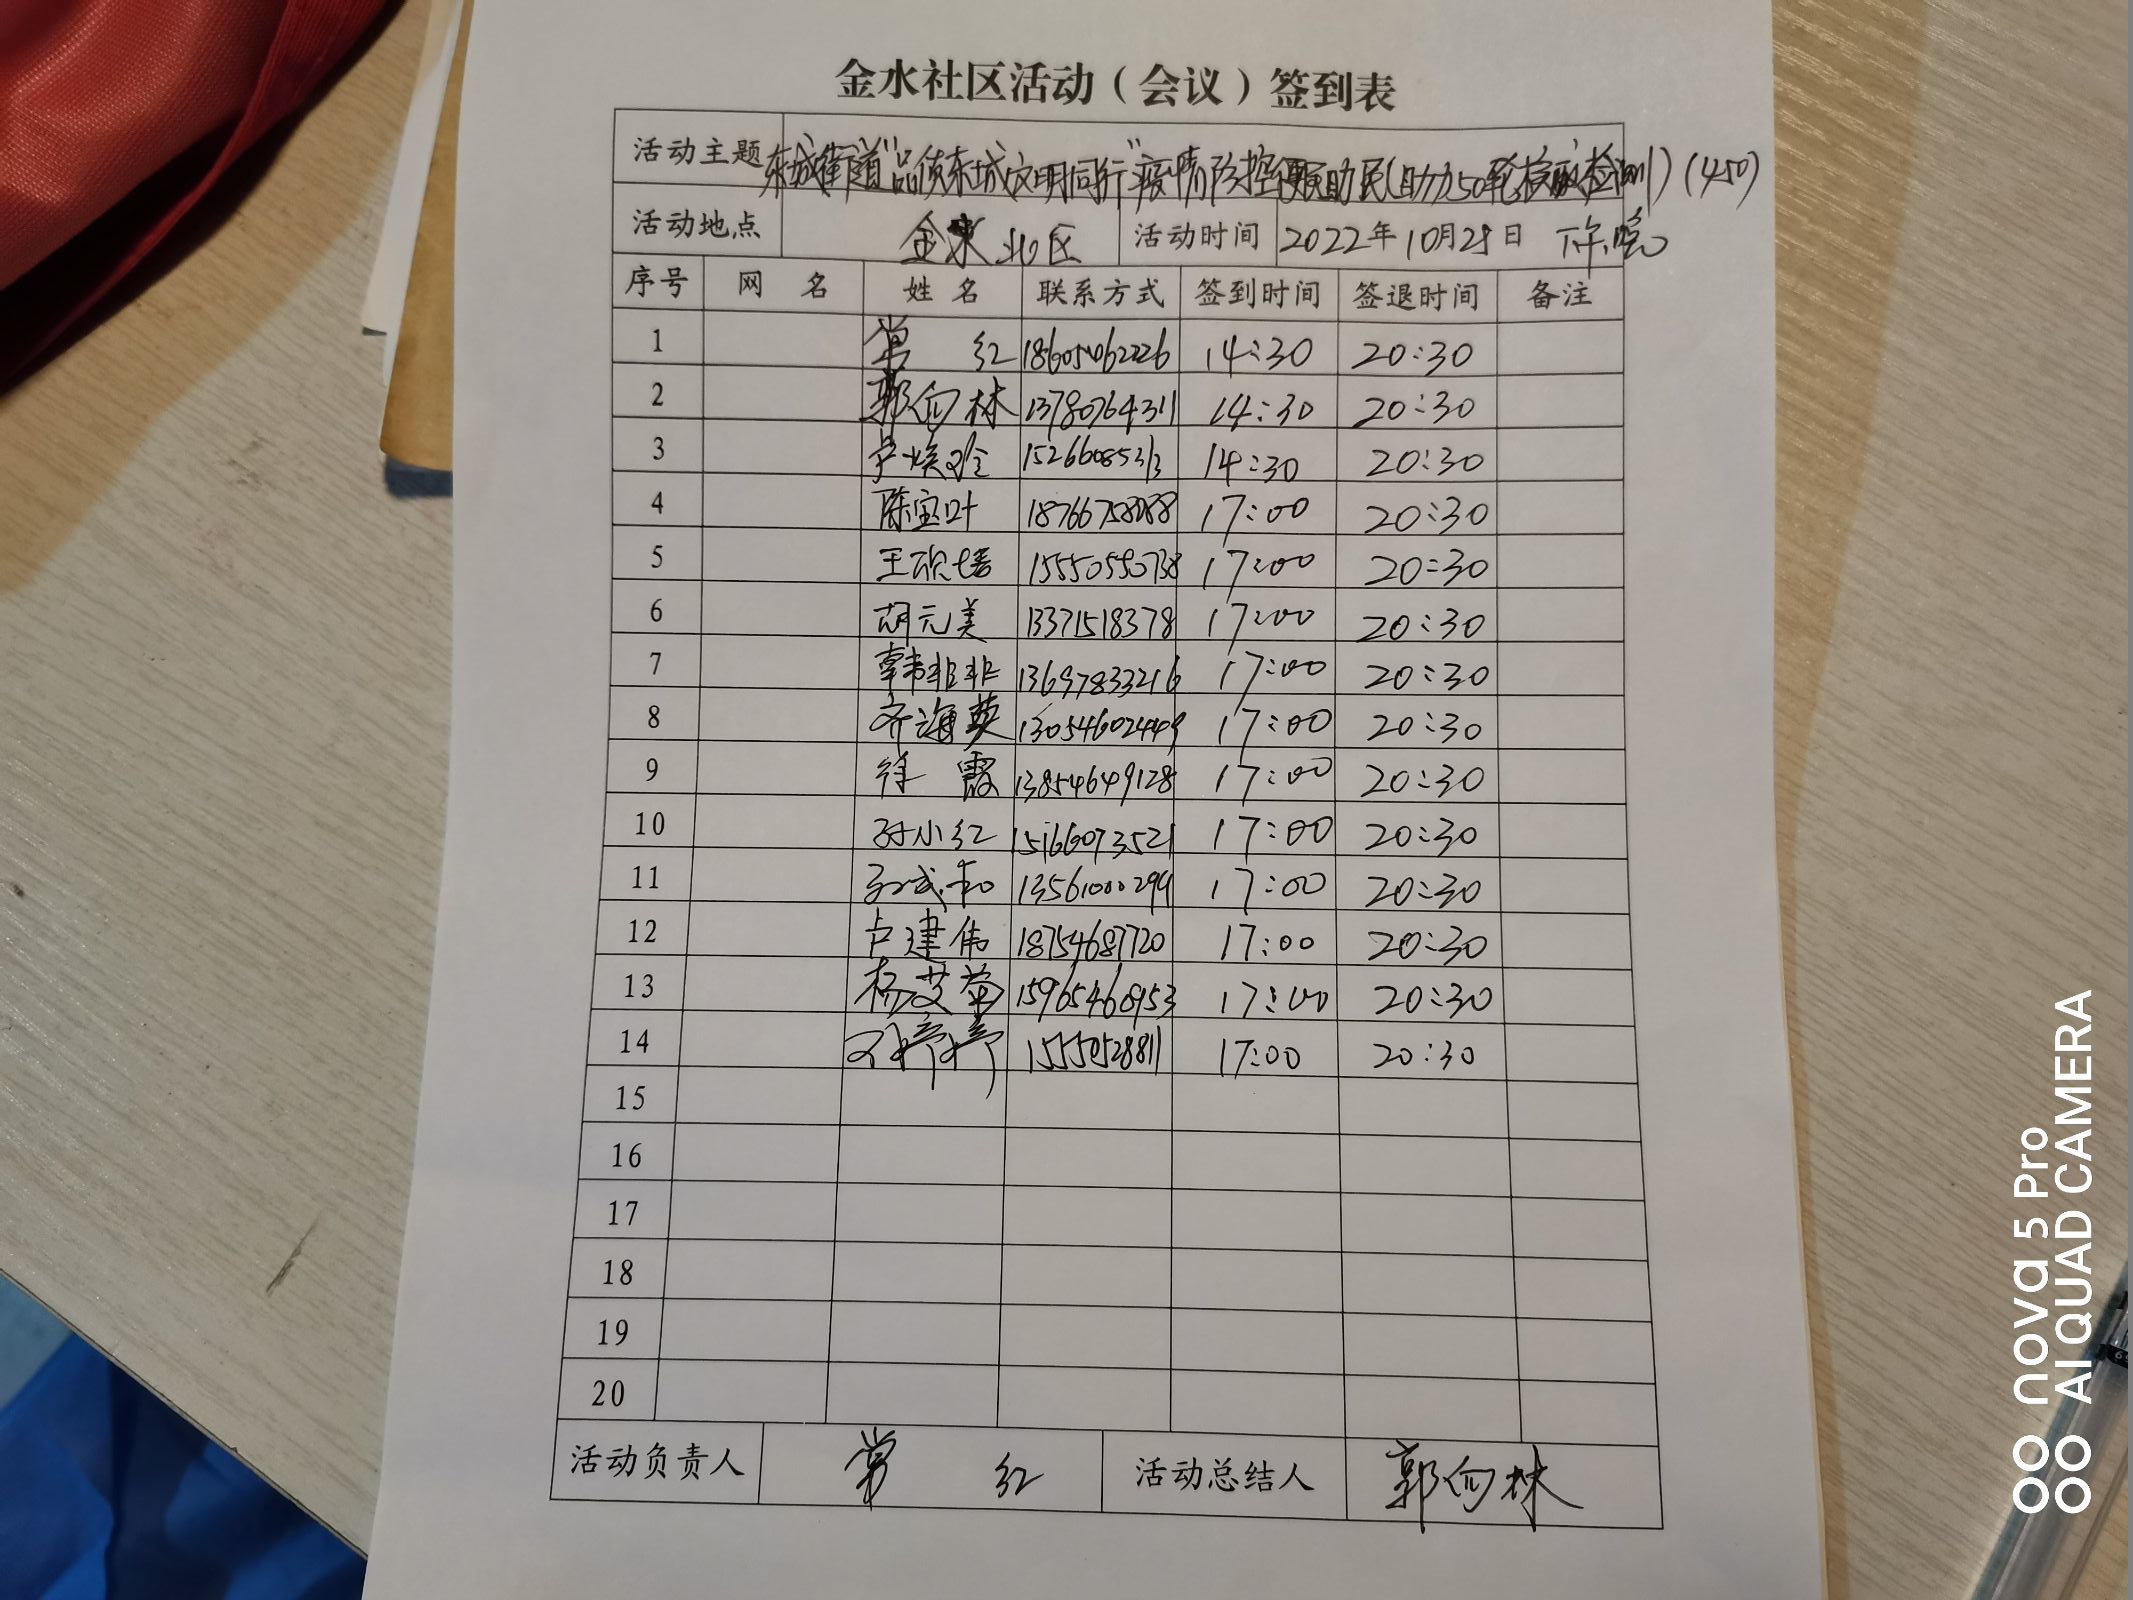 金水社区活动（会议）签到表
活动主题 东城街道“品质东城文明同行”疫情防控便民助民(助力50轮核酸检测)(450)
活动地点 金水北区 活动时间 2022年10月28日 下午.晚
序号 网 名 姓 名 联系方式 签到时间 签退时间 备注
1 常 红 18605462226 14:30 20:30
2 郭向林 13780764311 14:30 20:30
3 14:30 20:30
4 陈宝叶 17:00 20:30
5 15550550738 17:00 20:30
6 胡元美 13371518378 17:00 20:30
7 韩非非 13697833216 17:00 20:30
8 齐海英 17:00 20:30
9 徐 霞 13854649128 17:00 20:30
10 孙小红 15166073521 17:00 20:30
11 17:00 20:30
12 卢建伟 18754687720 17:00 20:30
13 杨艾菊 15965460953 17:00 20:30
14 刘婷婷 15550528811 17:00 20:30
15
16
17
18
19
20
活动负责人 常 红 活动总结人 郭向林
nova 5 Pro
AI QUAD CAMERA